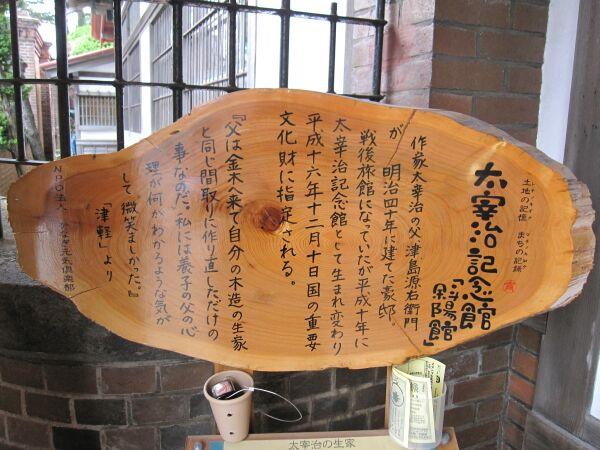 土地の記憶 まちの記録
太宰治記念館
「斜陽館」
作家太宰治の父、津島源右衛門
が、明治四十年に建てた豪邸。
戦後旅館になっていたが平成十年に
太宰治記念館として生まれ変わり
平成十六年十二月十日国の重要
文化財に指定される。
『父は金木へ来て自分の木造の生家
と同じ間取りに作り直しただけの
事なのだ。私には養子の父の心
理が何かわかるような気が
して微笑ましかった。』
「津軽」より
NPO法人 かなぎ元気倶楽部
太宰治の生家